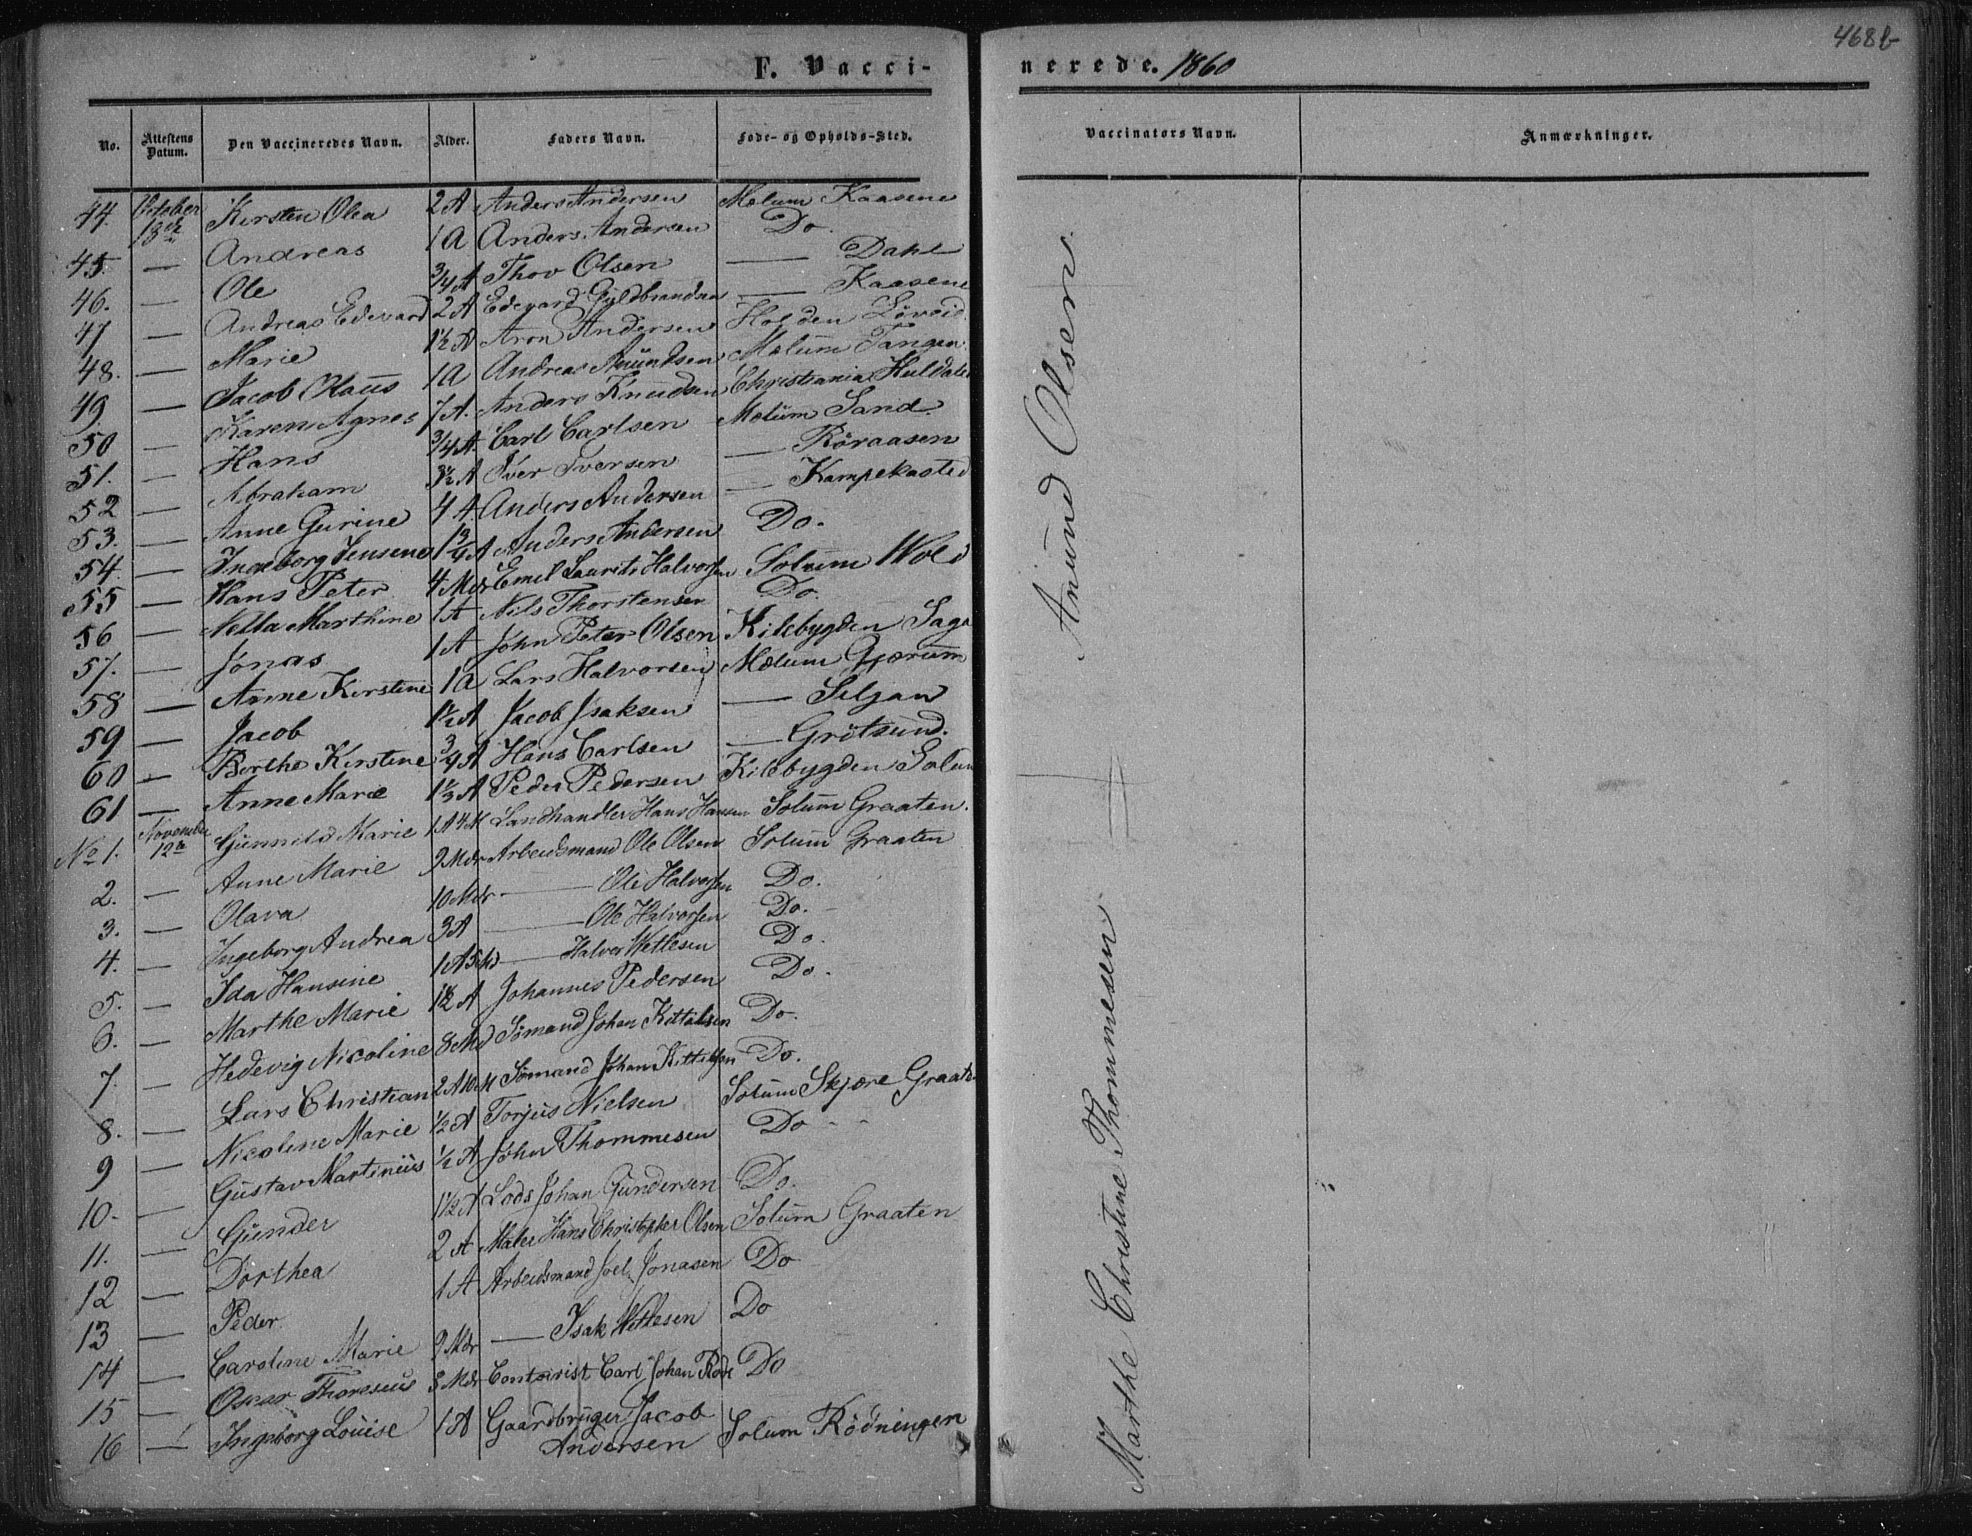 468 b
F. Vacci- nerede. 1860
No. Attestens Datum. Den Vaccineredes Navn. Alder. Faders Navn. Føde- og Opholds-Sted. Vaccinators Navn. Anmærkninger.
44. October 18de Kirsten Olea 2 A Anders Andersen Mælum Kaasene
45. — Andreas 1 A Anders Andersen Do.
46. — Ole 3/4 A Thov Olsen — Dahl
47 — Andreas Edevard 2 A Edevard Gyldbrandsen — Kaasene
48. — Marie 1½ A Aron Andersen Holden Löveid
49 — Jacob Olaus 1 A Andreas Amundsen Mælum Tangen
50 — Karen Agnes 7 A. Anders Knudsen Christiania
51. — Hans 3/4 A. Carl Carlsen Mælum Sand.
52 — Abraham 3½ A Iver Iversen — Röraasen
53. — Anne Gurine 4 A. Anders Andersen — Kampekasted
54. — Ingeborg Jensene 1 3/4 A Anders Andersen Do.
55 — Hans Peter 4 Mdr Emil Laurits Halvorsen Solum Wold
56 — Nella Marthine 1 A Nils Thorstensen Do.
57. — Jonas 1 A John Peter Olsen Kilebygden Saga
58 — Anne Kirstine 1 A Lars Halvorsen Mælum Gjærum
59 — Jacob 1½ A Jacob Isaksen — Siljan
60 — Berthe Kirstine 3/4 A Hans Carlsen — Grötsund.
61 — Anne Marie 1½ A Peder Pedersen Kilebygden Solum
No 1. November 12te Gunnild Marie 1 A 4 M Landhandler Hans Hansen Solum Graaten.
2. — Anne Marie 9 Mdr Arbeidsmand Ole Olsen Solum Graaten
3. — Olava 10 Mdr — Ole Halvorsen Do.
4. — Ingeborg Andrea 3 A — Ole Halvorsen Do.
5. — Ida Hansine 1 A 5 Md — Halvor Wetlesen Do.
6. — Marthe Marie 1½ A Johannes Pedersen Do.
7. — Hedevig Nicoline 8 Md Sömand Johan Kittilsen Do.
8. — Lars Christian 2 A 10 M Sömand Johan Kittilsen Do.
9 — Nicoline Marie ½ A Torjus Nielsen Solum Skjære Graaten
10. — Gustav Martinius ½ A John Thommesen Do
11. — Gunder 1½ A Lods Johan Gundersen Do.
12 — Dorthea 2 A Maler Hans Christopher Olsen Solum Graaten
13 — Peder 1 A Arbeidsmand Joel Jonasen Do
14 — Caroline Marie 9 Mdr — Isak Wetlesen Do
15 — Oscar Thoresius 8 Mdr Contorist Carl Johan Rode Do
16 — Ingeborg Louise 1 A Gaardbruger Jacob Andersen Solum Rödningen
Anund Olsen
Marthe Christine Thommesen